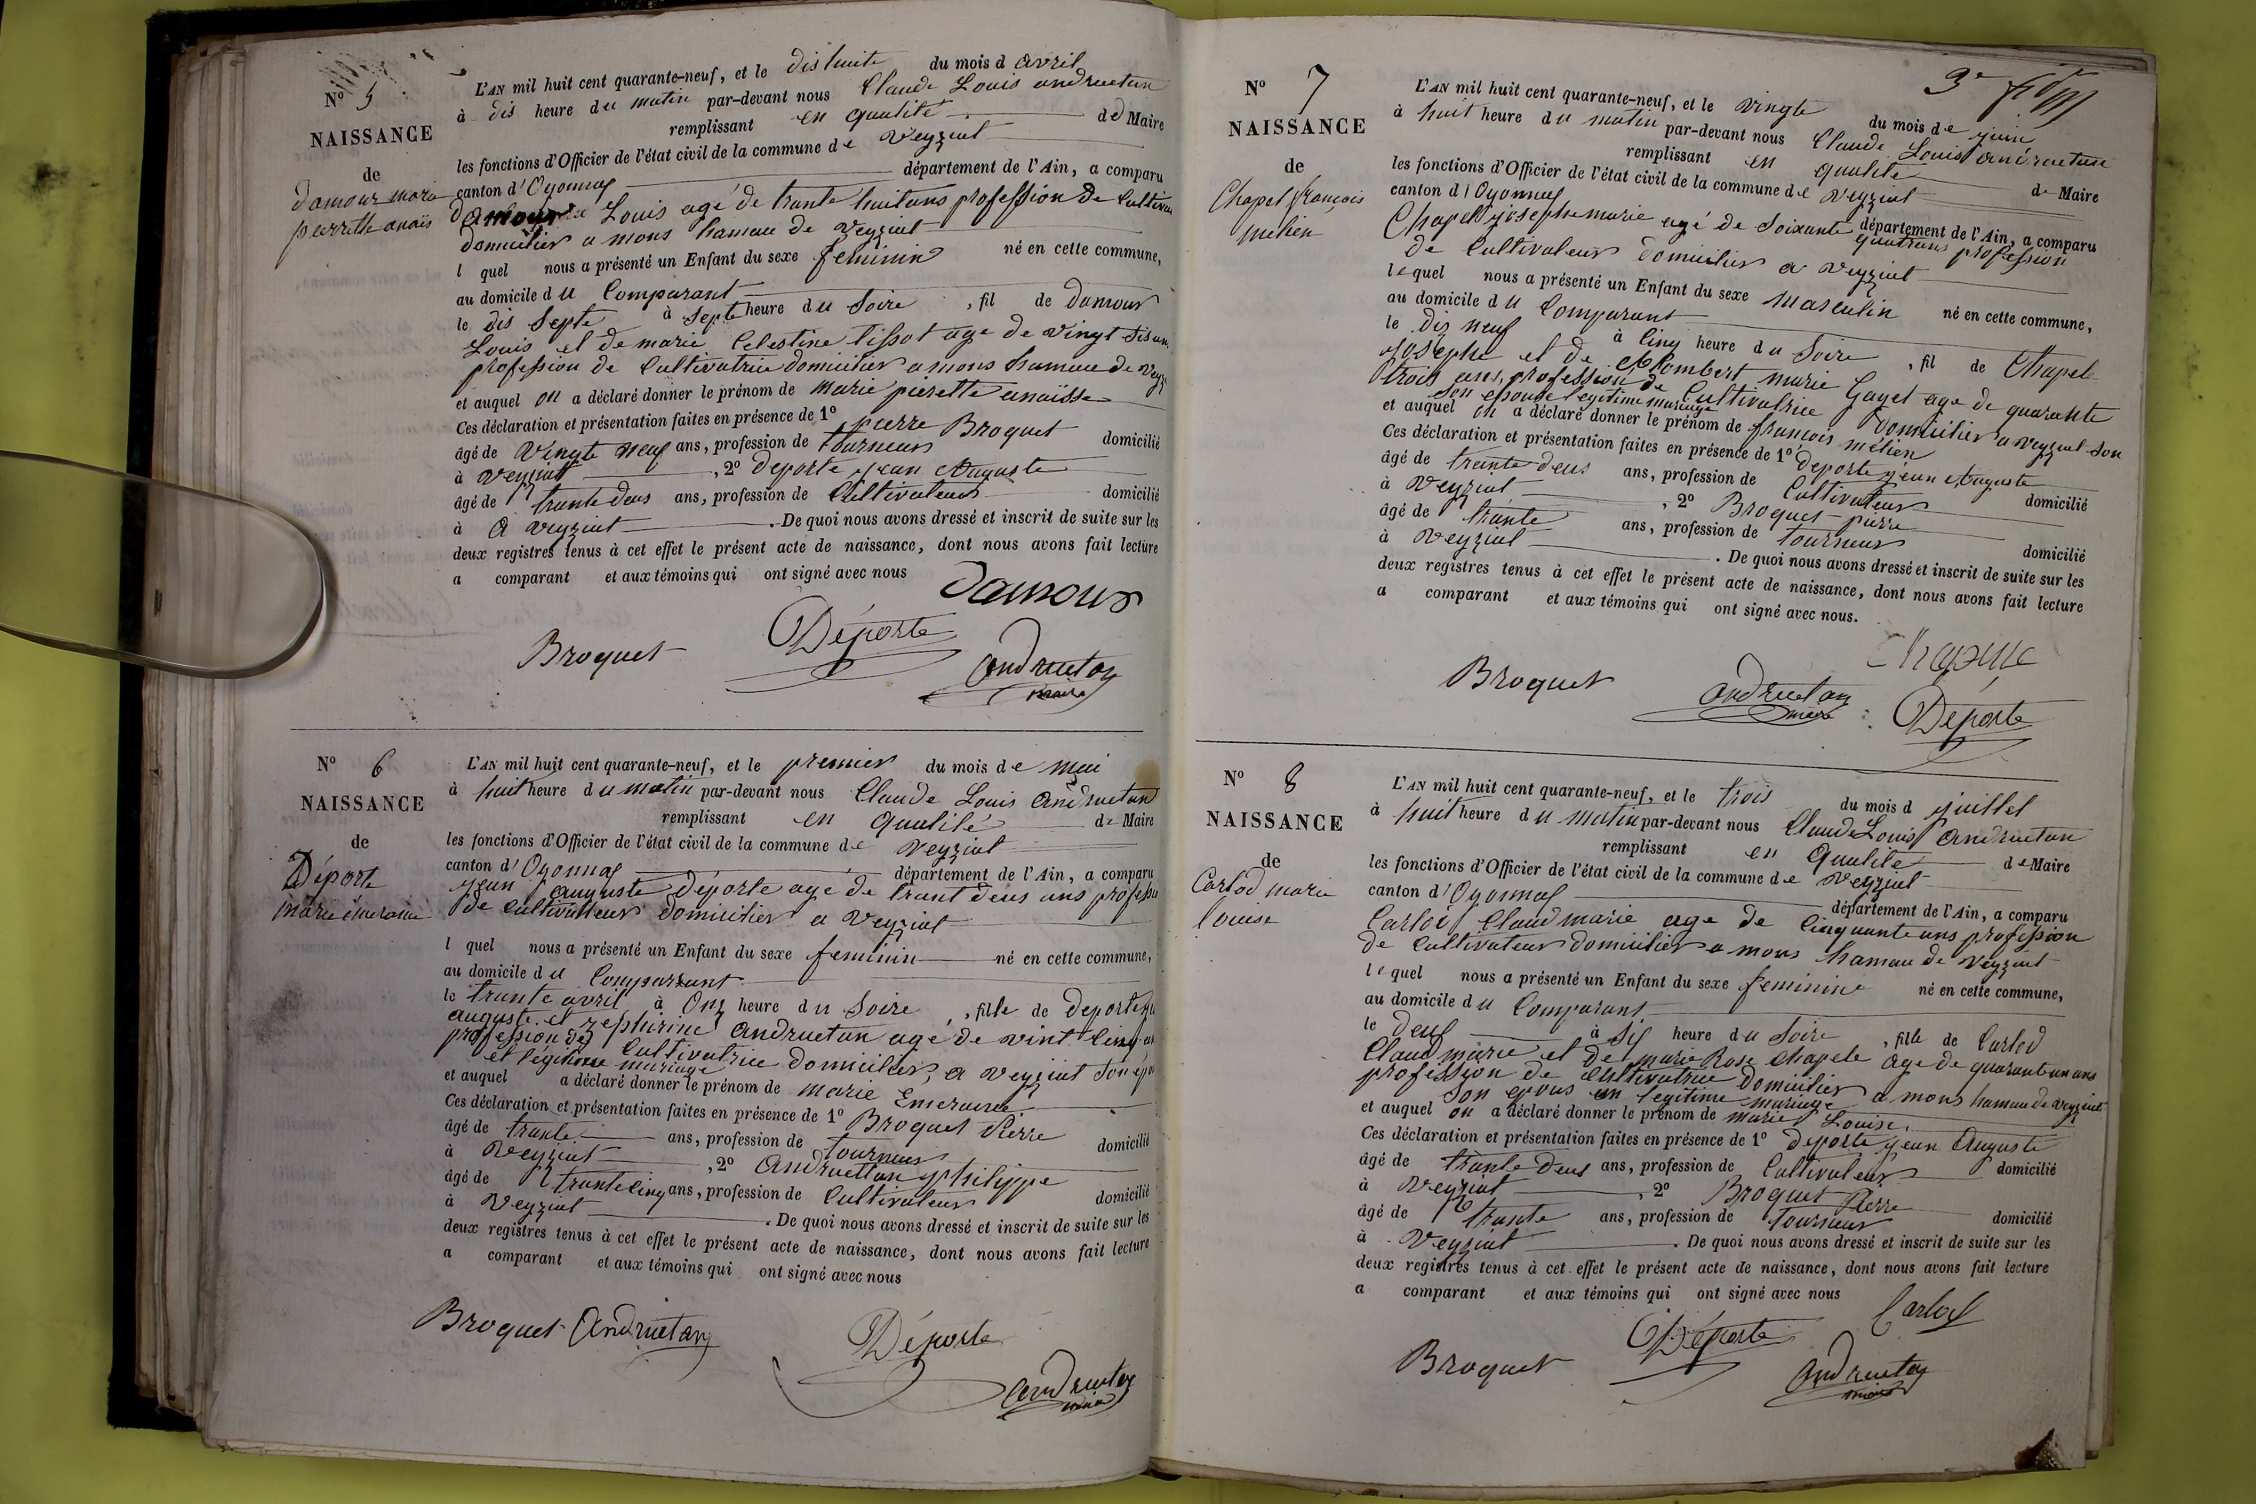 N° 5
NAISSANCE
de
damour marie
pierrette anaïs
L'AN mil huit cent quarante-neuf, et le dishuite du mois d avril
à dis heure du matin par-devant nous Claude Louis andruetan
remplissant en qualité de Maire
les fonctions d'Officier de l'état civil de la commune de veyziat
canton d'Oyonnas département de l'Ain, a comparu
damour Louis agé de trante huit ans profession de Cultivateu
domicilier a mons hamau de veyziat
l quel nous a présenté un Enfant du sexe feminin né en cette commune,
au domicile du Comparant
le dis septe à septe heure du Soire , fil de damour
Louis et de marie Celestine tissot age de vingt sis an
profession de Cultivatrice domicilier a mons hamau de veyz
et auquel on a déclaré donner le prénom de marie pierette anaïsse
Ces déclaration et présentation faites en présence de 1° pierre Broquet
âgé de vingte neuf ans, profession de tourneur domicilié
à veyziat , 2° deporte jean Auguste
âgé de trante deus ans, profession de Cultivateur domicilié
à a veyziat . De quoi nous avons dressé et inscrit de suite sur les
deux registres tenus à cet effet le présent acte de naissance, dont nous avons fait lecture
a comparant et aux témoins qui ont signé avec nous
Damour
Broquet Déporte
andruetan
maire
N° 6
NAISSANCE
de
Déporte
marie émeraise
L'AN mil huit cent quarante-neuf, et le premier du mois de mai
à huit heure du matin par-devant nous Claude Louis andruetan
remplissant en qualité de Maire
les fonctions d'Officier de l'état civil de la commune de veyziat
canton d'Oyonnas département de l'Ain, a comparu
jean auguste déporte agé de trant deus ans professi
de Cultivatteur domicilier a veyziat
l quel nous a présenté un Enfant du sexe feminin né en cette commune,
au domicile du Comparant
le trante avril à onz heure du Soire , fille de deporte
auguste et zephirine andruetan agé de vint cinq an
profession de Cultivatrice domicilier a veyziat son épo
et légitime mariage
et auquel a déclaré donner le prénom de marie Emeraise
Ces déclaration et présentation faites en présence de 1° Broquet Pierre
âgé de trante ans, profession de tourneur domicilié
à veyziat , 2° andruettan philippe
âgé de trante cinq ans, profession de Cultivateur domicilié
à veyziat . De quoi nous avons dressé et inscrit de suite sur les
deux registres tenus à cet effet le présent acte de naissance, dont nous avons fait lecture
a comparant et aux témoins qui ont signé avec nous
Broquet andruetan Déporte
andruetan
maire
3e
N° 7
NAISSANCE
de
Chapel françois
mélien
L'AN mil huit cent quarante-neuf, et le vingte du mois de juin
à huit heure du matin par-devant nous Claude Louis andruetan
remplissant en qualité de Maire
les fonctions d'Officier de l'état civil de la commune de veyziat
canton d'Oyonnas département de l'Ain, a comparu
Chapel josephe marie agé de soixante quatrans profession
de Cultivateur domicilier a veyziat
lequel nous a présenté un Enfant du sexe masculin né en cette commune,
au domicile du Comparant
le dis neuf à Cinq heure du Soire , fil de Chapel
josephe et de Humbert marie Gayet age de quarante
trois ans, profession de Cultivatrice domicilier a veyziat son
son epouse legitime mariage
et auquel on a déclaré donner le prénom de françois mélien
Ces déclaration et présentation faites en présence de 1° deporte jean Auguste
âgé de trante deus ans, profession de Cultivateur domicilié
à veyziat , 2° Broquet pierre
âgé de trante ans, profession de tourneur domicilié
à veyziat . De quoi nous avons dressé et inscrit de suite sur les
deux registres tenus à cet effet le présent acte de naissance, dont nous avons fait lecture
a comparant et aux témoins qui ont signé avec nous.
Broquet andruetan
maire Déporte
N° 8
NAISSANCE
de
Carlod marie
louise
L'AN mil huit cent quarante-neuf, et le trois du mois d juillet
à huit heure du matin par-devant nous Claude Louis andruetan
remplissant en qualité de Maire
les fonctions d'Officier de l'état civil de la commune de veyziat
canton d'Oyonnas département de l'Ain, a comparu
Carlod Claud marie age de Cinquante ans profession
de Cultivateur domicilier a mons hamau de veyziat
lequel nous a présenté un Enfant du sexe feminin né en cette commune,
au domicile du Comparant
le deus à sis heure du Soire , fille de Carlod
Claud marie et de marie Rose Chapele age de quarant un ans
profession de Cultivatrice domicilier a mons hamau de veyziat
son epous en legitime mariage
et auquel on a déclaré donner le prénom de marie Louise
Ces déclaration et présentation faites en présence de 1° deporte jean Auguste
âgé de trante deus ans, profession de Cultivateur domicilié
à veyziat , 2° Broquet Pierre
âgé de trante ans, profession de tourneur domicilié
à veyziat . De quoi nous avons dressé et inscrit de suite sur les
deux registres tenus à cet effet le présent acte de naissance, dont nous avons fait lecture
a comparant et aux témoins qui ont signé avec nous
Carlod
Broquet Déporte
andruetan
maire